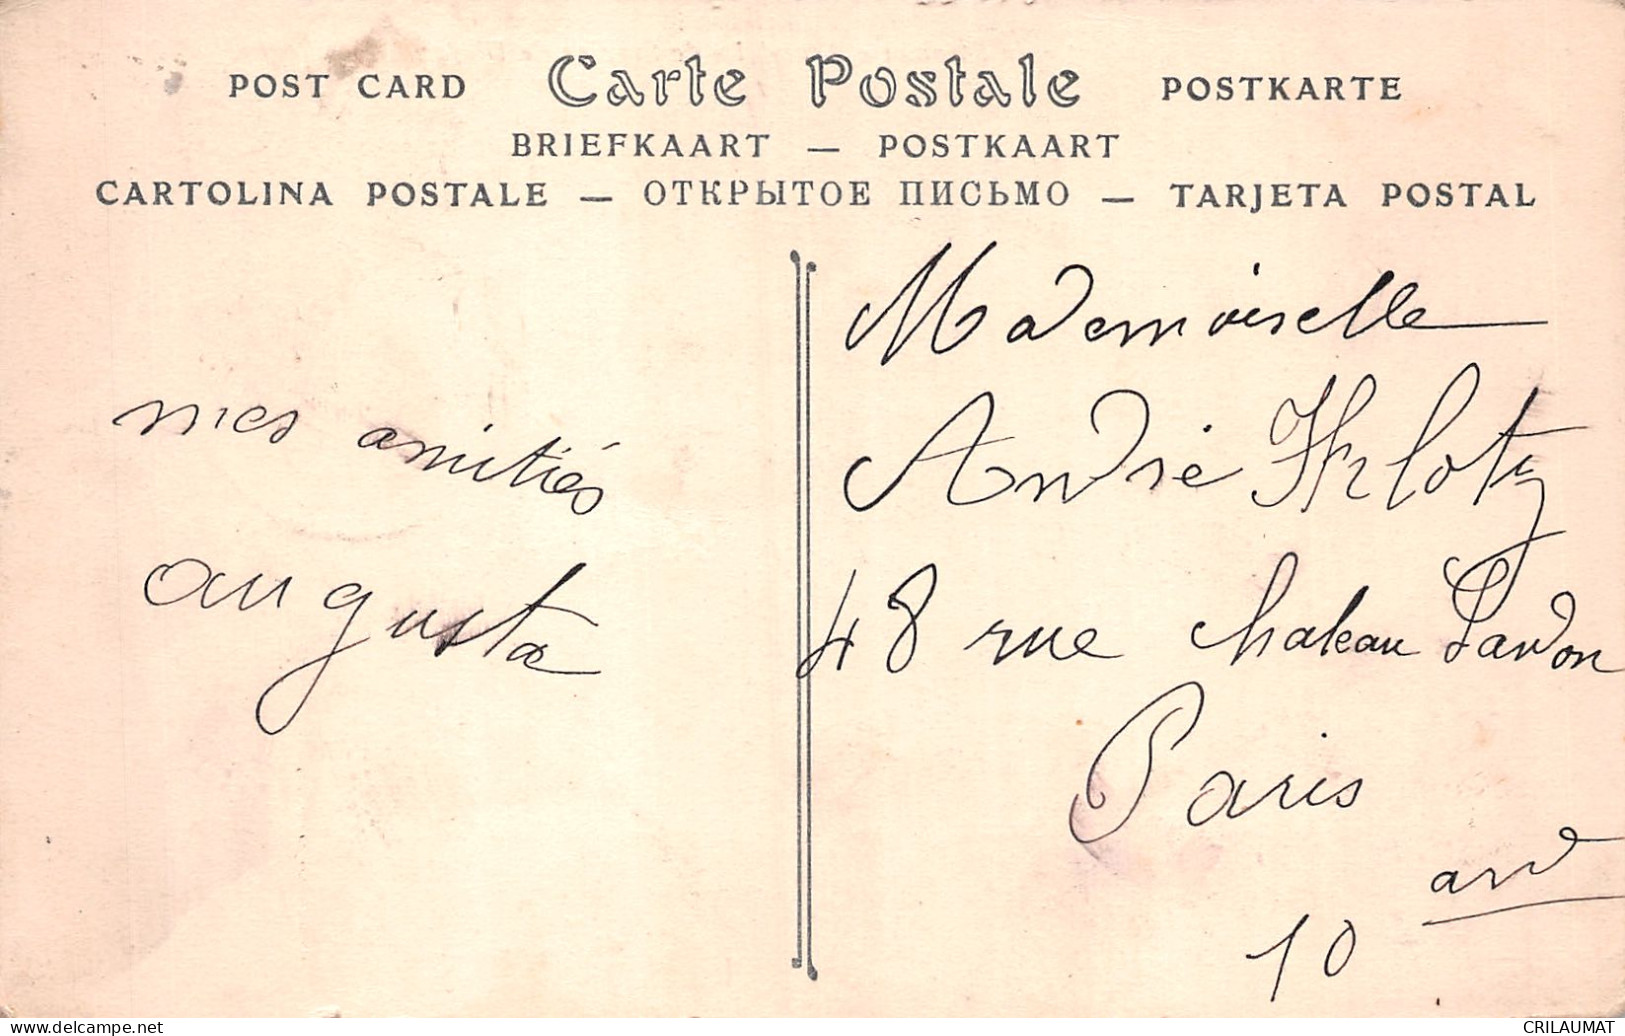 POST CARD Carte Postale POSTKARTE
BRIEFKAART — POSTKAART
CARTOLINA POSTALE — ОТКРЫТОЕ ПИСЬМО — TARJETA POSTAL
mes amitiés
augusta
Mademoiselle
André Klotz
48 rue chateau Landon
Paris
10 arrd
delcampe.net
CRILAUMAT